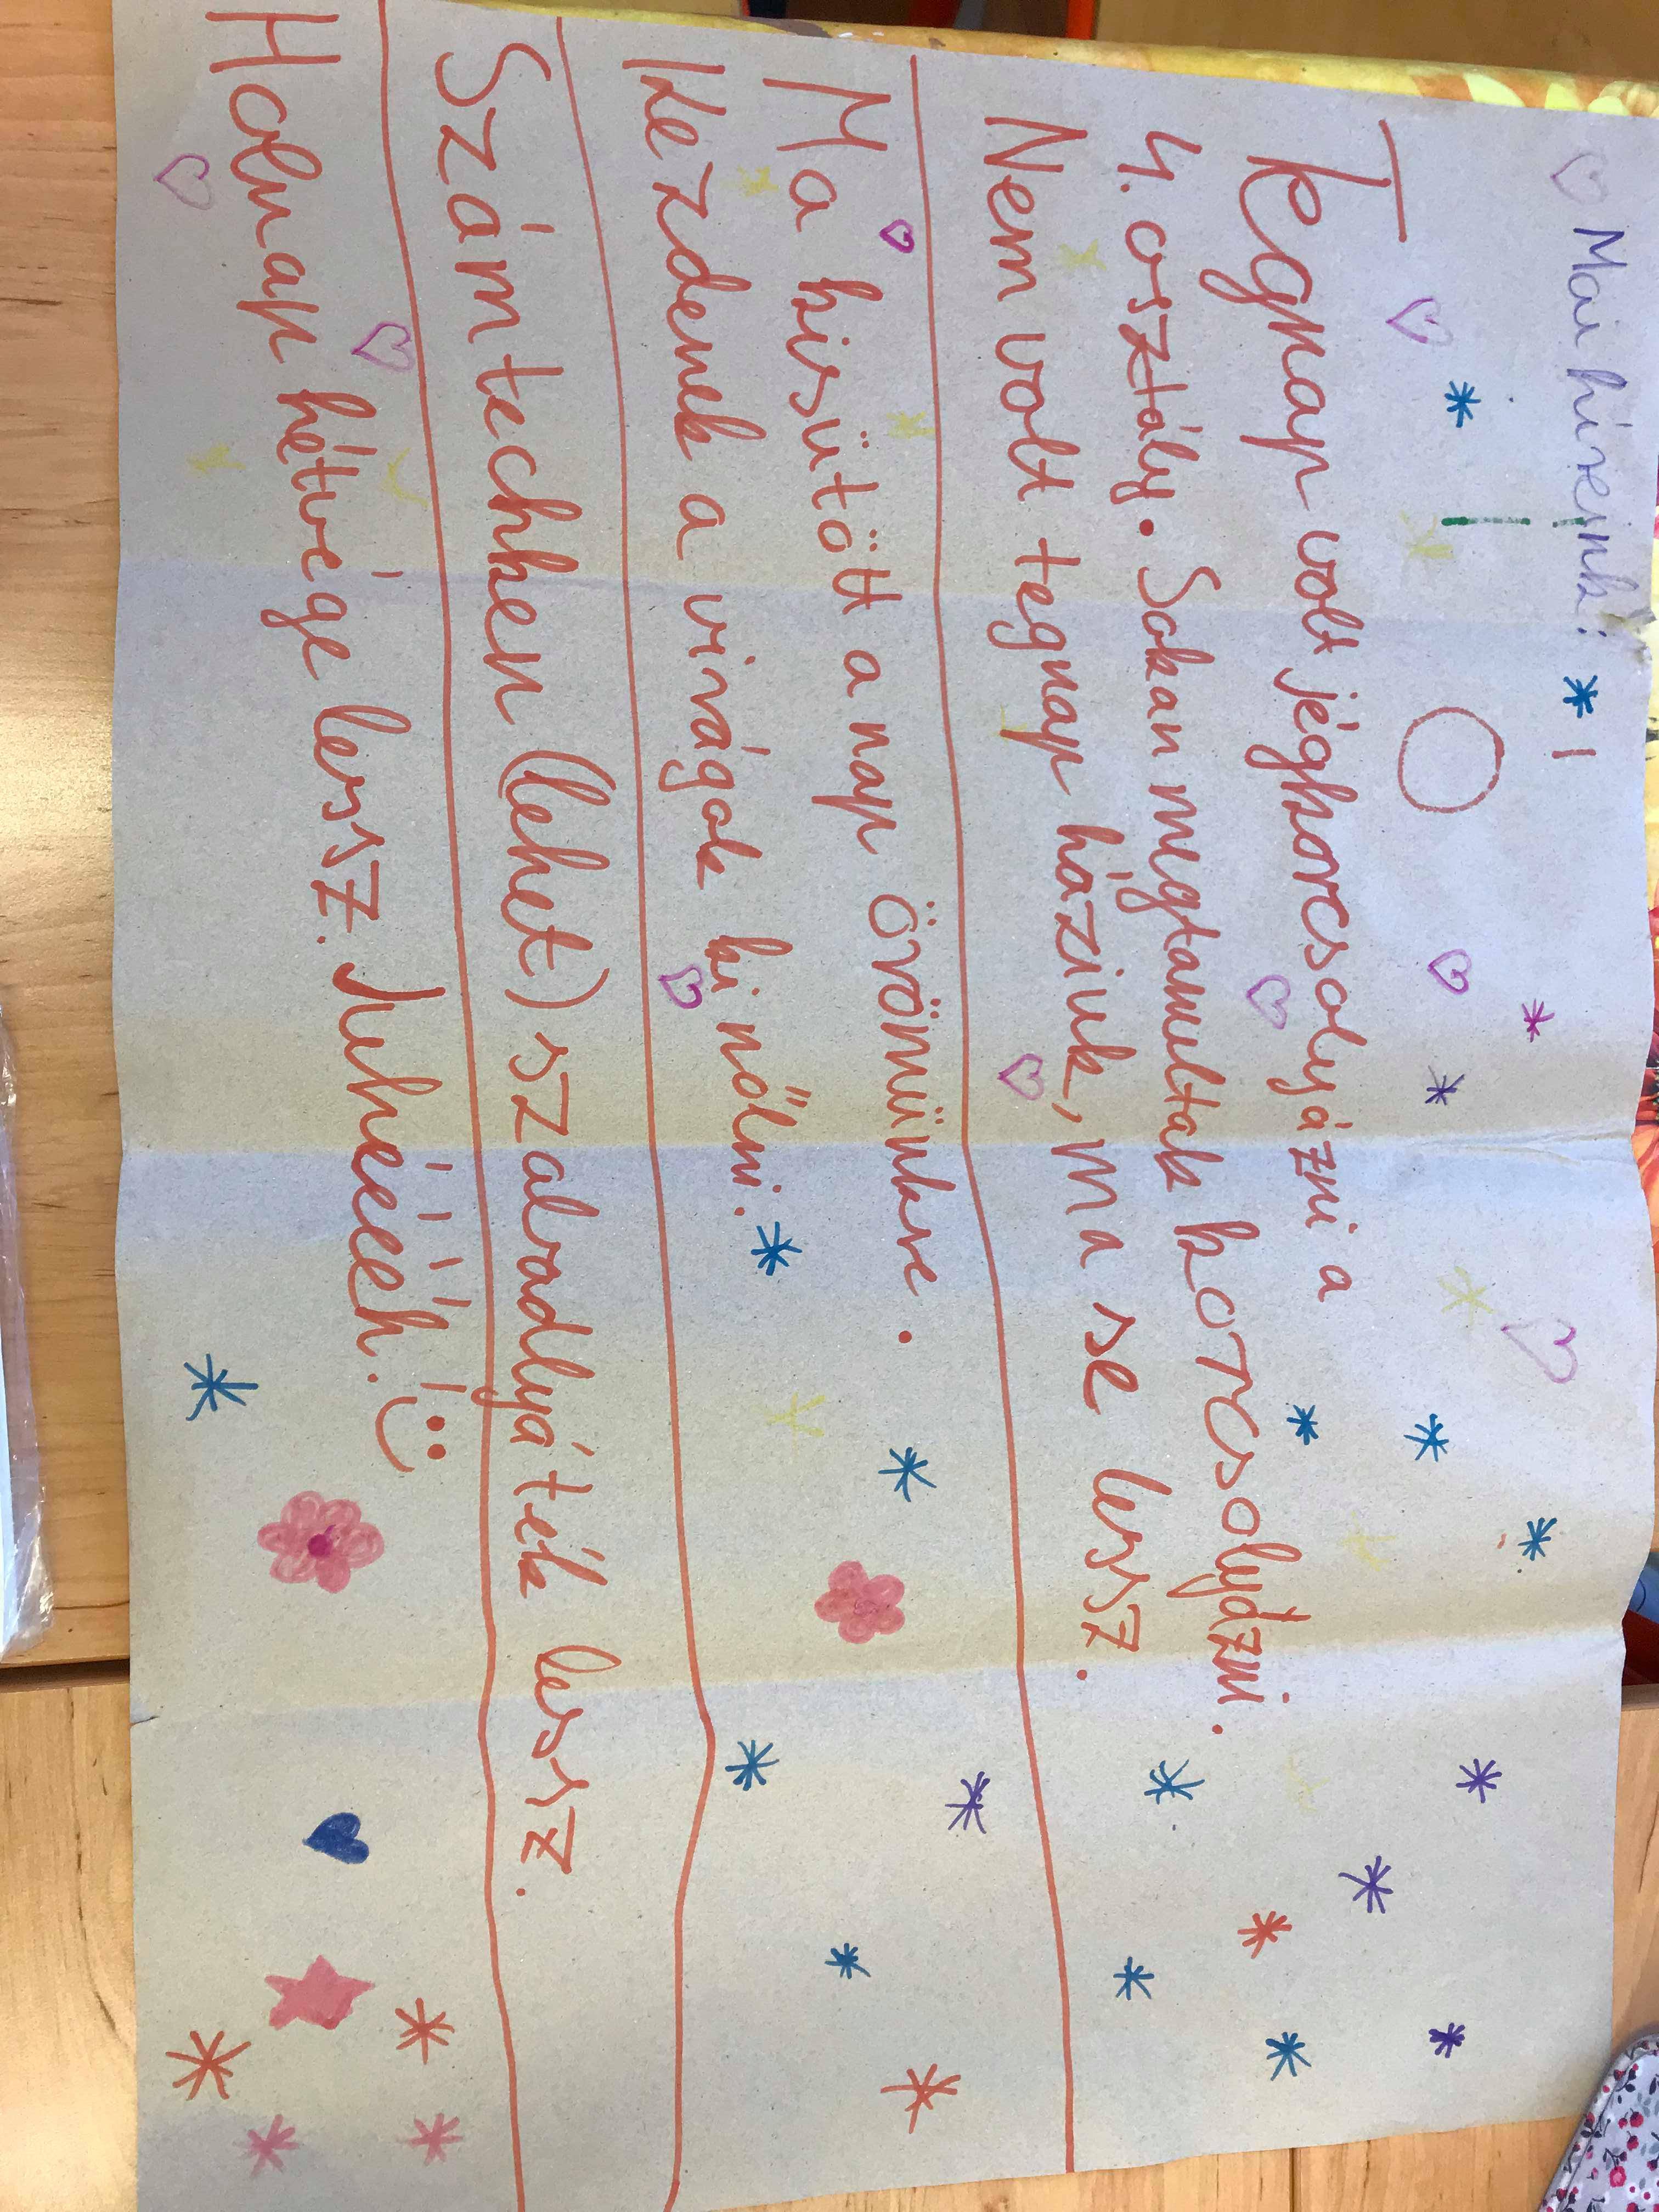 Mai híreink:
Tegnap volt jégkorcsolyázni a
4. osztály. Sokan megtanultak korcsolyázni.
Nem volt tegnap házink, ma se lessz.
Ma kisütött a nap örömünkre.
Kezdenek a virágok ki nőlni.
Számtechken (lehet) szabadlyáték lessz.
Holnap hétvége lessz. Juhéééh!